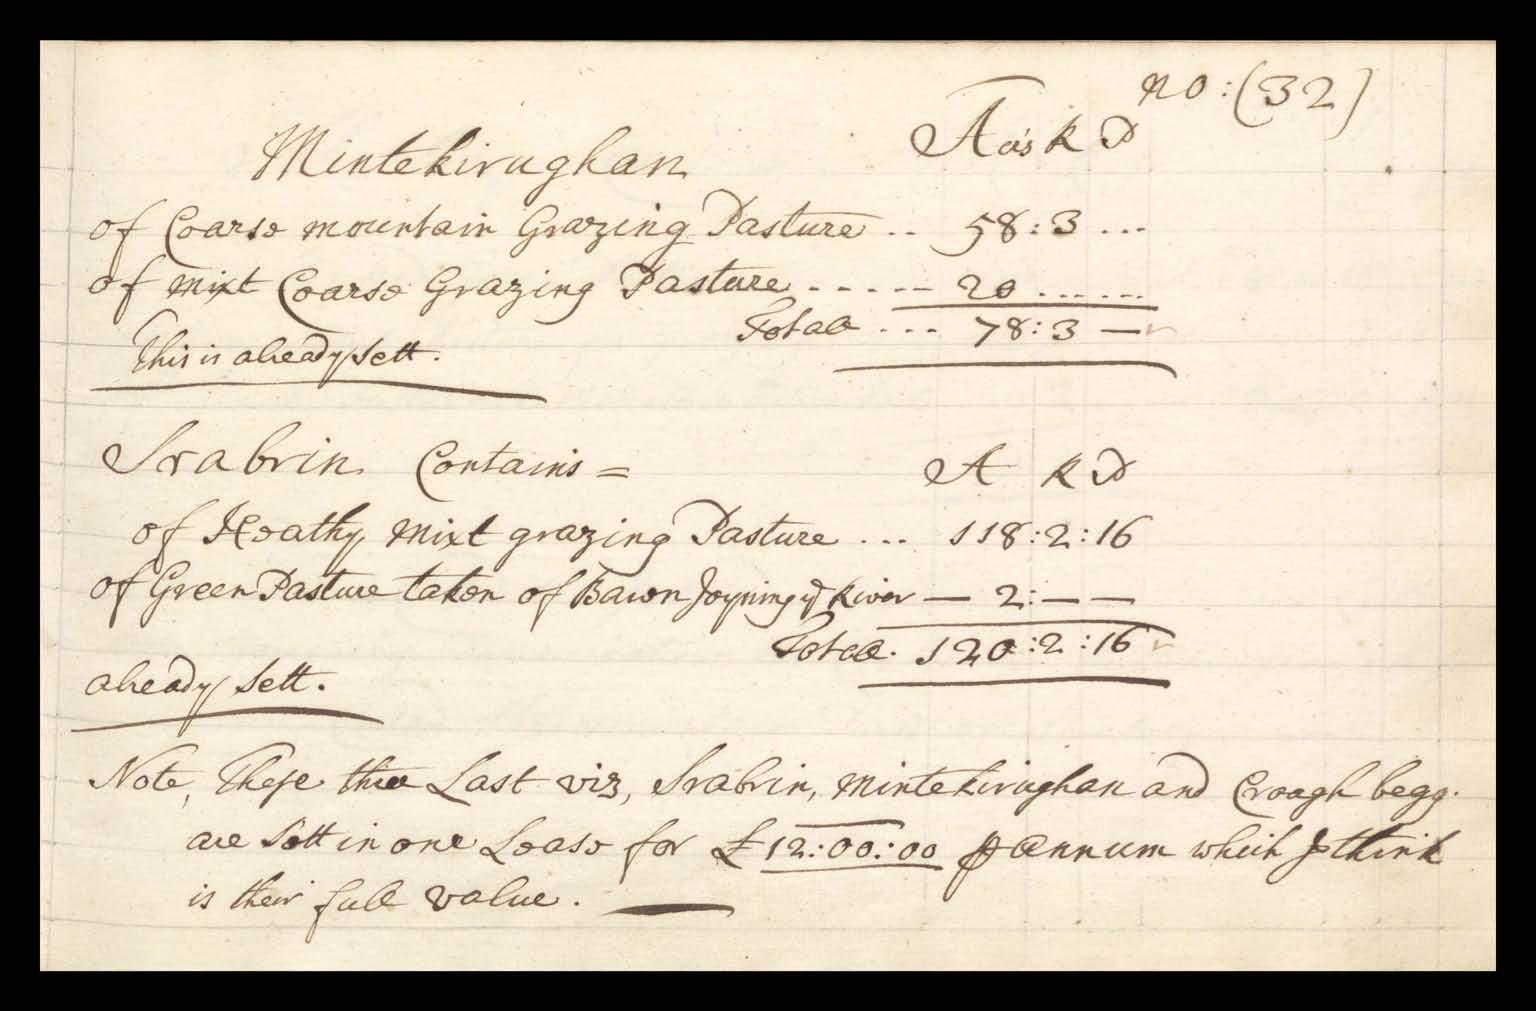 no: (32)
Mintekirughan Acrs R P
of Coarse mountain Grazing Pasture .. 58:3 ...
of mixt Coarse Grazing Pasture ----- 20 ......
Totall ... 78:3 —
This is already sett.
Srabrin Contains = A R P
of Heathy mixt grazing Pasture ... 118:2:16
of Green Pasture taken of Bawn Joyning ye River — 2:— —
Totall. 120:2:16
already sett.
Note, These three Last viz, Srabrin, Mintekirughan and Crough begg.
are sett in one Lease for £12:00:00 p annum which I think
is their full value.